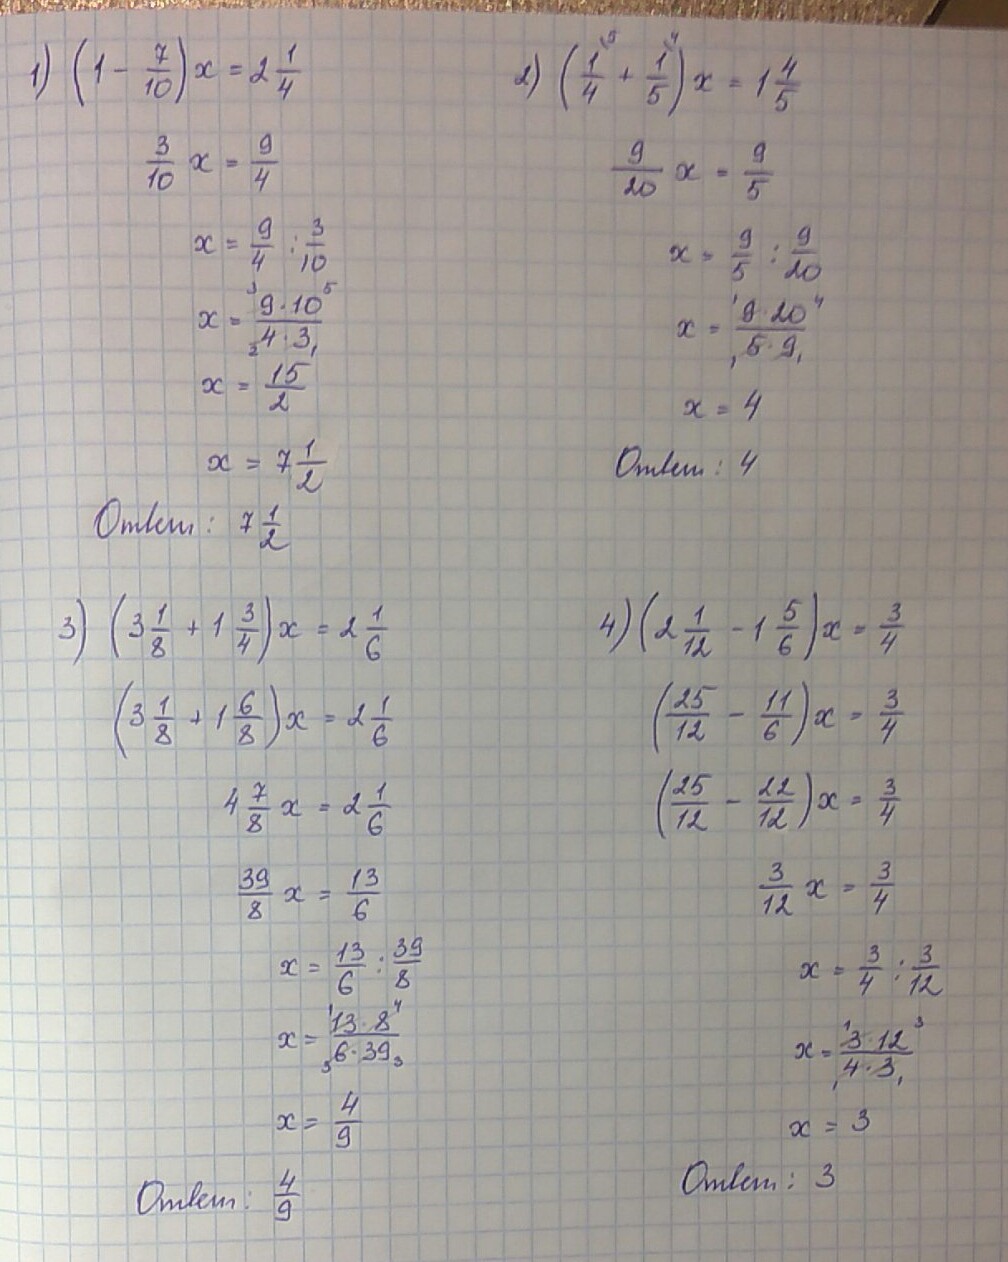 1) (1 - 7/10)x = 2 1/4
3/10 x = 9/4
x = 9/4 : 3/10
x = ³9·10⁵/₂4·3₁
x = 15/2
x = 7 1/2
Ответ: 7 1/2
2) (1/4\5 + 1/5\4)x = 1 4/5
9/20 x = 9/5
x = 9/5 : 9/20
x = ¹9·20⁴/₁5·9₁
x = 4
Ответ: 4
3) (3 1/8 + 1 3/4)x = 2 1/6
(3 1/8 + 1 6/8)x = 2 1/6
4 7/8 x = 2 1/6
39/8 x = 13/6
x = 13/6 : 39/8
x = ¹13·8⁴/₃6·39₃
x = 4/9
Ответ: 4/9
4) (2 1/12 - 1 5/6)x = 3/4
(25/12 - 11/6)x = 3/4
(25/12 - 22/12)x = 3/4
3/12 x = 3/4
x = 3/4 : 3/12
x = ¹3·12³/₁4·3₁
x = 3
Ответ: 3